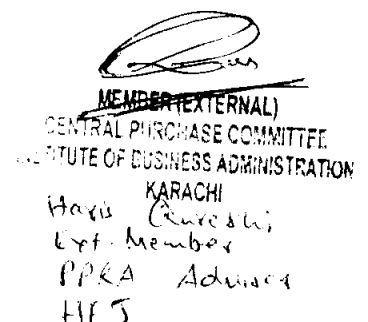 MEMBER (EXTERNAL)
CENTRAL PURCHASE COMMITTEE
INSTITUTE OF BUSINESS ADMINISTRATION
KARACHI
Haris Qureshi
Ext. Member
PPRA Adviser